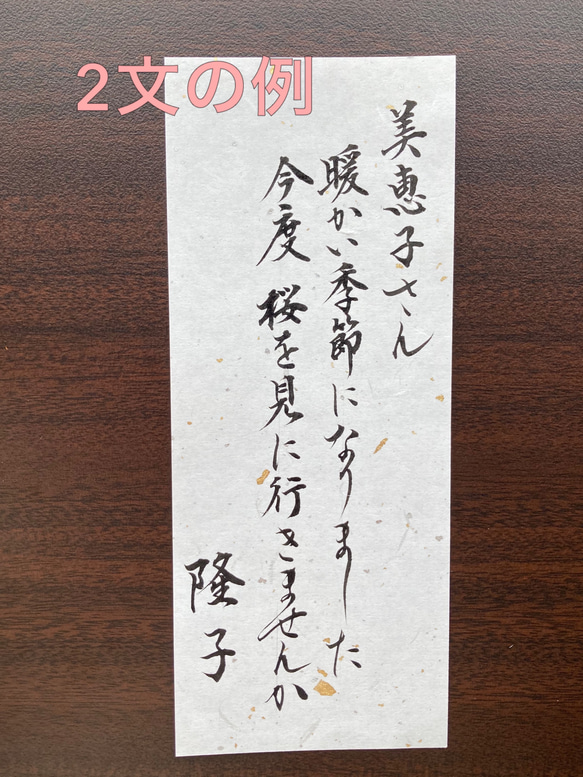 2文の例
美恵子さん
暖かい季節になりました
今度 桜を見に行きませんか
隆子